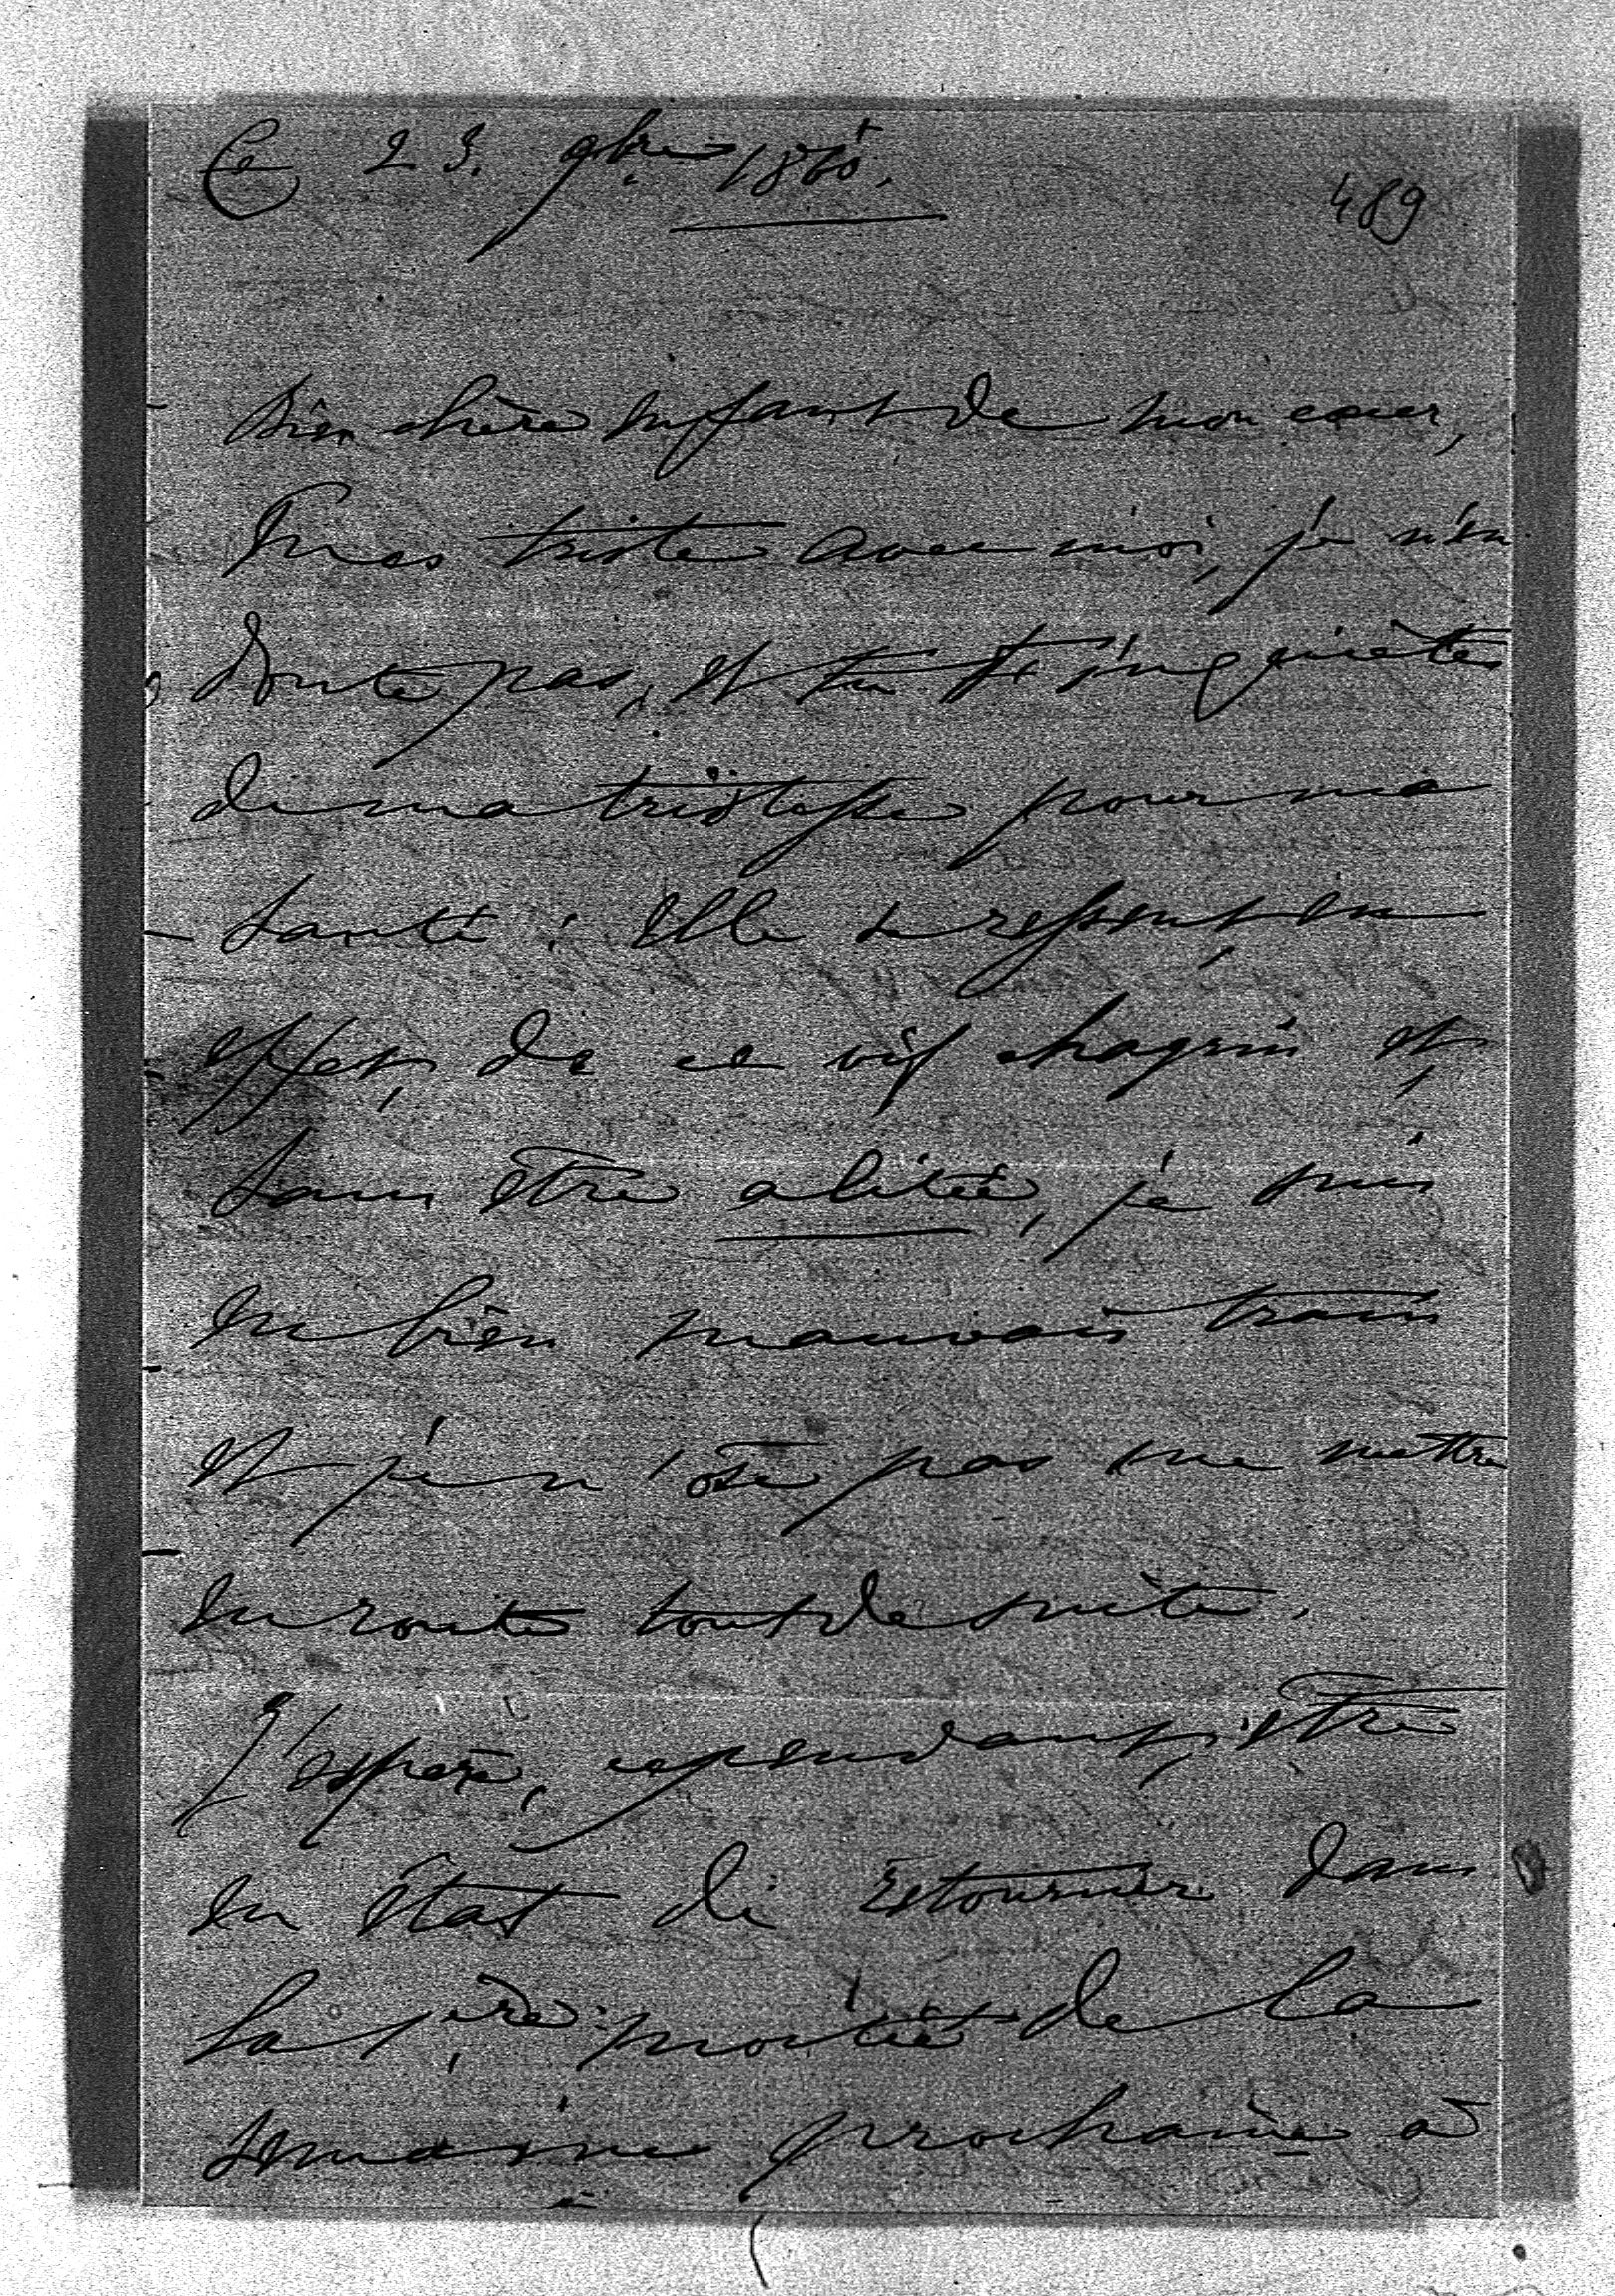 Ce 23. 9bre 1860.
489
Bien chère Enfant de mon cœur,
Tu es triste avec moi, je n'en
doute pas, et tu t'inquiètes
de ma tristesse pour ma
santé : Elle se ressent, en
effet, de ce vif chagrin et,
sans être alitée, je suis
en bien mauvais train
et je n'ose pas me mettre
En route tout de suite.
J'espère, cependant, être
En Etat de retourner dans
la 1ère moitié de la
semaine prochaine à